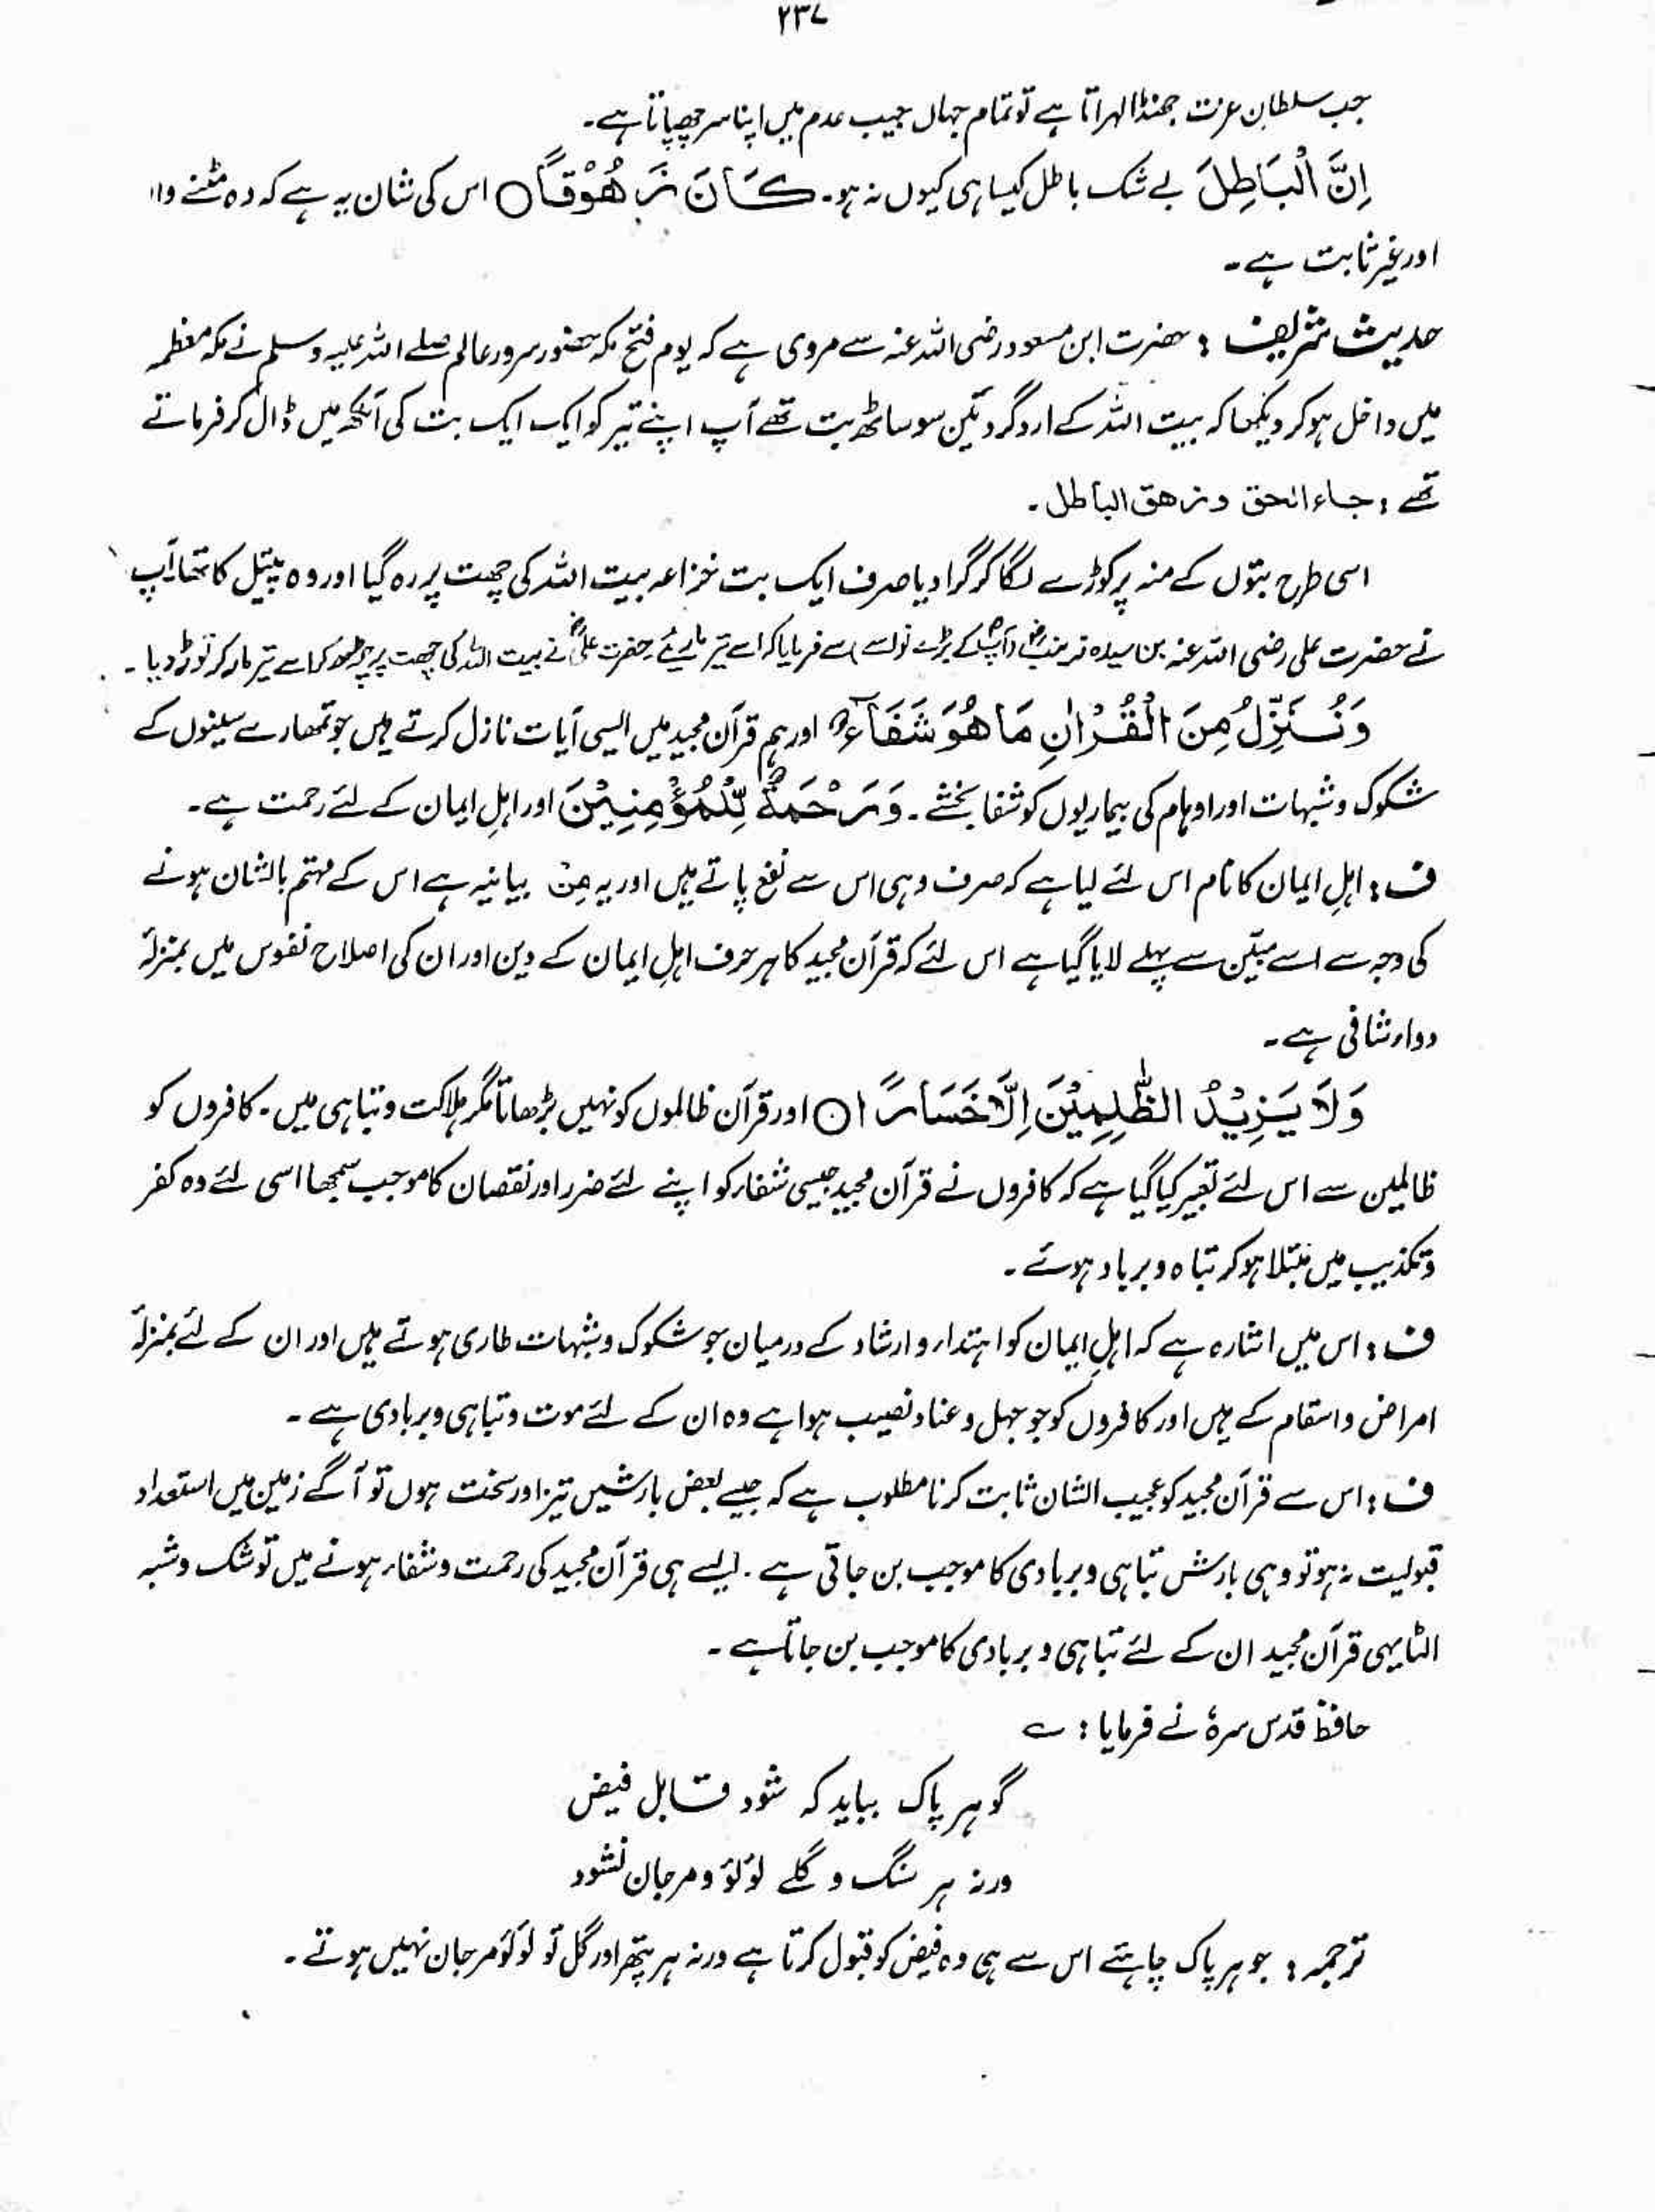 ۲۳۷
جب سلطان عزت جھنڈا لہراتا ہے تو تمام جہاں جیب عدم میں اپنا سر چھپاتا ہے۔
اِنَّ الْبَاطِلَ بے شک باطل کیسا ہی کیوں نہ ہو۔ كَانَ زَهُوْقًا ○ اس کی شان یہ ہے کہ وہ مٹنے والا
اور غیر ثابت ہے۔
حدیث شریف : حضرت ابن مسعود رضی اللہ عنہ سے مروی ہے کہ یوم فتح مکہ حضور سرور عالم صلے اللہ علیہ وسلم نے مکہ معظمہ
میں داخل ہو کر دیکھا کہ بیت اللہ کے ارد گرد تین سو ساٹھ بت تھے آپ اپنے تیر کو ایک ایک بت کی آنکھ میں ڈال کر فرماتے
تھے : جاء الحق و زهق الباطل۔
اسی طرح بتوں کے منہ پر کوڑے لگا کر گرا دیا صرف ایک بت خزاعہ بیت اللہ کی چھت پر رہ گیا اور وہ پیتل کا تھا آپ
نے حضرت علی رضی اللہ عنہ بن سیدہ زینبؓ (آپؐ کے بڑے نواسے) سے فرمایا کہ اسے تیر ماریئے حضرت علیؓ نے بیت اللہ کی چھت پر چڑھ کر اسے تیر مار کر توڑ دیا۔
وَنُنَزِّلُ مِنَ الْقُرْاٰنِ مَا هُوَ شَفَآءٌ اور ہم قرآن مجید میں ایسی آیات نازل کرتے ہیں جو تمھارے سینوں کے
شکوک و شبہات اور اوہام کی بیماریوں کو شفا بخشے۔ وَرَحْمَةٌ لِّلْمُؤْمِنِيْنَ اور اہلِ ایمان کے لئے رحمت ہے۔
ف : اہلِ ایمان کا نام اس لئے لیا ہے کہ صرف وہی اس سے نفع پاتے ہیں اور یہ مِنْ بیانیہ ہے اس کے مہتم بالشان ہونے
کی وجہ سے اسے مبیّن سے پہلے لایا گیا ہے اس لئے کہ قرآن مجید کا ہر حرف اہلِ ایمان کے دین اور ان کی اصلاح نفوس میں بمنزلۂ
دواء شافی ہے۔
وَلَا يَزِيْدُ الظّٰلِمِيْنَ اِلَّا خَسَارًا ○ اور قرآن ظالموں کو نہیں بڑھاتا مگر ہلاکت و تباہی میں۔ کافروں کو
ظالمین سے اس لئے تعبیر کیا گیا ہے کہ کافروں نے قرآن مجید جیسی شفاء کو اپنے لئے ضرر اور نقصان کا موجب سمجھا اسی لئے وہ کفر
و تکذیب میں مبتلا ہو کر تباہ و برباد ہوئے۔
ف : اس میں اشارہ ہے کہ اہلِ ایمان کو اہتداء و ارشاد کے درمیان جو شکوک و شبہات طاری ہوتے ہیں اور ان کے لئے بمنزلۂ
امراض و اسقام کے ہیں اور کافروں کو جو جہل و عناد نصیب ہوا ہے وہ ان کے لئے موت و تباہی و بربادی ہے۔
ف : اس سے قرآن مجید کو عجیب الشان ثابت کرنا مطلوب ہے کہ جیسے بعض بارشیں تیز اور سخت ہوں تو آگے زمین میں استعداد
قبولیت نہ ہو تو وہی بارش تباہی و بربادی کا موجب بن جاتی ہے۔ ایسے ہی قرآن مجید کی رحمت و شفاء ہونے میں تو شک و شبہ
الٹا یہی قرآن مجید ان کے لئے تباہی و بربادی کا موجب بن جاتا ہے۔
حافظ قدس سرہٗ نے فرمایا : ؎
گوہر پاک بباید کہ شود قابل فیض
ورنہ ہر سنگ و گلے لؤلؤ و مرجان نشود
ترجمہ : جوہر پاک چاہئے اس سے ہی وہ فیض کو قبول کرتا ہے ورنہ ہر پتھر اور گل تو لؤلؤ مرجان نہیں ہوتے۔